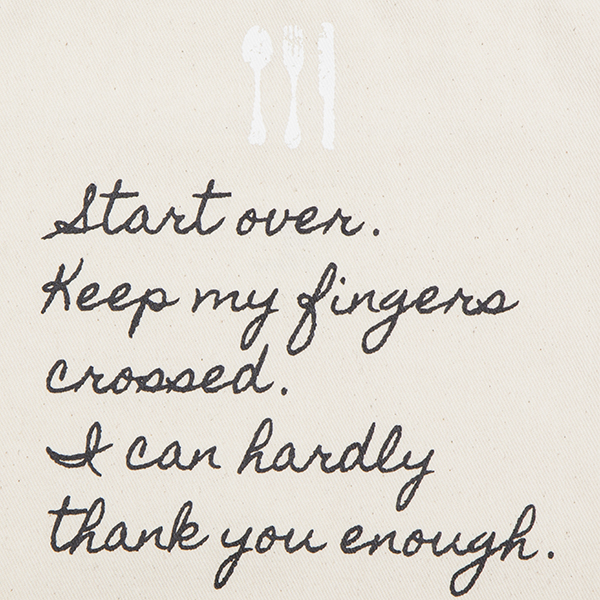 Start over.
Keep my fingers
crossed.
I can hardly
thank you enough.